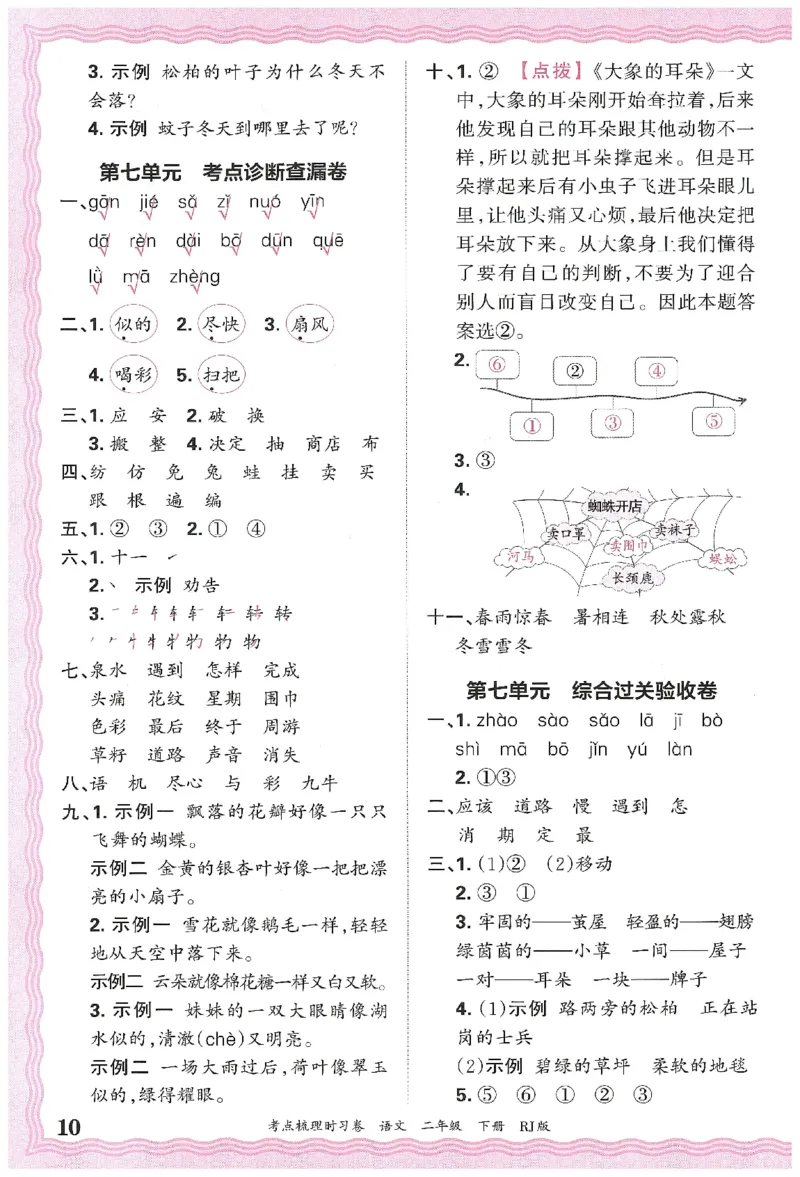 3. 示例 松柏的叶子为什么冬天不
会落?
4. 示例 蚊子冬天到哪里去了呢?
第七单元 考点诊断查漏卷
一、gān jié sǎ zǐ nuó yīn
dā rèn dài bō dūn quē
lǜ mā zhèng
二、1. 似的 2. 尽快 3. 扇风
4. 喝彩 5. 扫把
三、1. 应 安 2. 破 换
3. 搬 整 4. 决定 抽 商店 布
四、纺 仿 免 兔 蛙 挂 卖 买
跟 根 遍 编
五、1. ② ③ 2. ① ④
六、1. 十一 ㇀
2. 丶 示例 劝告
3. 转
物 物
七、泉水 遇到 怎样 完成
头痛 花纹 星期 围巾
色彩 最后 终于 周游
草籽 道路 声音 消失
八、语 机 尽心 与 彩 九牛
九、1. 示例一 飘落的花瓣好像一只只
飞舞的蝴蝶。
示例二 金黄的银杏叶好像一把把漂
亮的小扇子。
2. 示例一 雪花就像鹅毛一样,轻轻
地从天空中落下来。
示例二 云朵就像棉花糖一样又白又软。
3. 示例一 妹妹的一双大眼睛像湖
水似的,清澈(chè)又明亮。
示例二 一场大雨过后,荷叶像翠玉
似的,绿得耀眼。
十、1. ② 【点拨】《大象的耳朵》一文
中,大象的耳朵刚开始耷拉着,后来
他发现自己的耳朵跟其他动物不一
样,所以就把耳朵撑起来。但是耳
朵撑起来后有小虫子飞进耳朵眼儿
里,让他头痛又心烦,最后他决定把
耳朵放下来。从大象身上我们懂得
了要有自己的判断,不要为了迎合
别人而盲目改变自己。因此本题答
案选②。
2. ⑥ ② ④
① ③ ⑤
3. ③
4.
蜘蛛开店
卖口罩 卖围巾 卖袜子
河马 长颈鹿 蜈蚣
十一、春雨惊春 暑相连 秋处露秋
冬雪雪冬
第七单元 综合过关验收卷
一、1. zhào sào sǎo lā jī bò
shì mā bō jǐn yú làn
2. ①③
二、应该 道路 慢 遇到 怎
消 期 定 最
三、1. (1)② (2)移动
2. ③ ①
3. 牢固的——茧屋 轻盈的——翅膀
绿茵茵的——小草 一间——屋子
一对——耳朵 一块——牌子
4. (1)示例 路两旁的松柏 正在站
岗的士兵
(2)示例 碧绿的草坪 柔软的地毯
5. ⑤ ⑥ ① ② ③
10 考点梳理时习卷 语文 二年级 下册 RJ版